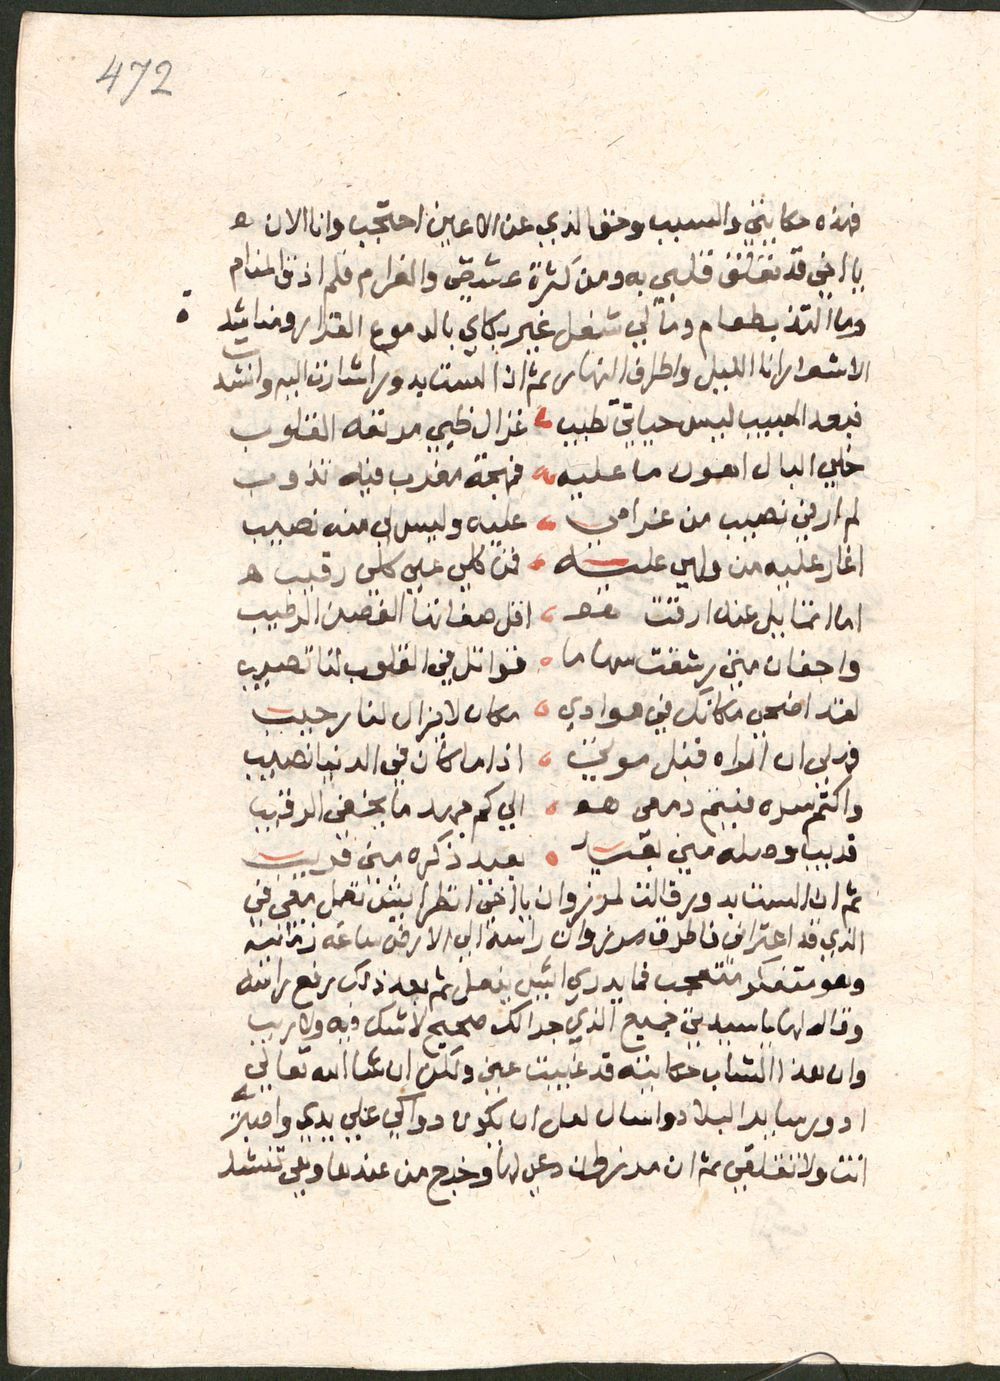 472
فهذه حكايتي والسبب وحق الذي عن الاعين احتجب وانا الان ه
يا اخي قد تعلق قلبي به ومن كثرة عشقي والغرام فلم اذق المنام
وما التذ بطعام وما لي شغل غير بكاي بالدموع الغزار ومناشدة
الاشعار انا الليل واطراف النهار ثم ان الست بدور اشارت اليه وانشد
فبعد الحبيب ليس حياتي تطيب غزال ظبي مرتعه القلوب
خلي البال اهون ما عليه فمهجة مغرب فيه تذوب
لم ارفي نصيب من غرامي عليه وليس لي منه نصيب
اغار عليه من ولهي عليه فمن كلي علي كلي رقيب ه
اما تمايل عنه ارقت اقل صفاتنا الغصن الرطيب
واجفان متي رشقت سهاما قواتل في القلوب لنا تصيب
لقد اضحي مكانك في هوادي مكان لا يزال لنا رحيب
فهل لي ان اراه قبل موتي اذا ما كان في الدنيا نصيب
واكتم سره فينم دمعي الي كم جهد ما يخفي الرقيب
قريب وصله مني بعيد بعيد ذكره مني قريب
ثم ان الست بدور قالت لمرزوان يا اخي انظر ايش تعمل معي في
الذي قد اعتراني فاطرق مرزوان راسه الي الارض ساعة زمانية
وهو متفكر متعجب فما يدري ايش يفعل ثم بعد ذلك رفع راسه
وقال لها يا سيدتي جميع الذي جرا لك صحيح لاشك فيه ولا ريب
وان هذا الشاب حكايته قد غيبت عني ولكن ان شا الله تعالي
ادور ساير البلاد واسال لعل ان يكون دواكي علي يدي واصبري
انت ولا تقلقي ثم ان مرزوان دعي لها وخرج من عندها وهي تنشد